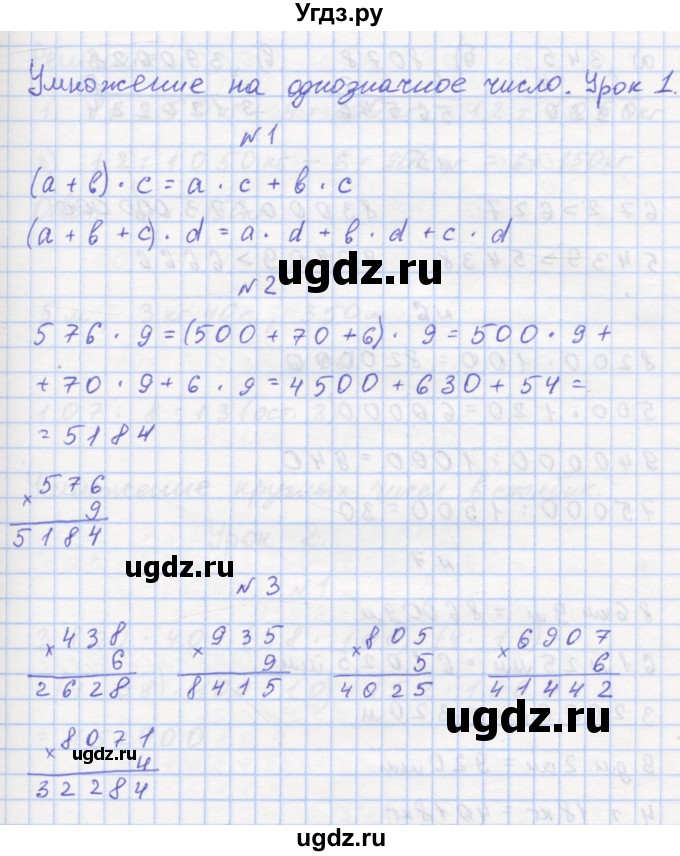 Угдз.ру
Умножение на однозначное число. Урок 1.
№1
(a + b) · c = a · c + b · c
(a + b + c) · d = a · d + b · d + c · d
ugdz.ru
№2
576 · 9 = (500 + 70 + 6) · 9 = 500 · 9 +
+ 70 · 9 + 6 · 9 = 4500 + 630 + 54 =
= 5184
× 576
9
5184
ugdz.ru
№3
× 438 × 935 × 805 × 6907
6 9 5 6
2628 8415 4025 41442
× 8071
4
32284
ugdz.ru
ugdz.ru